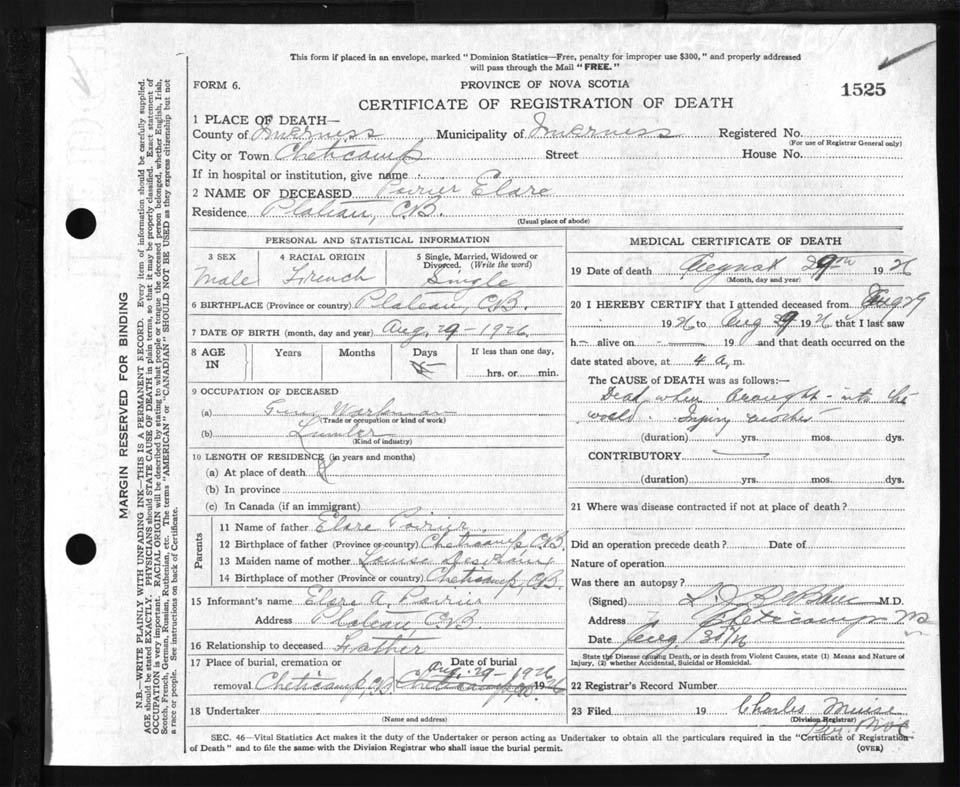 This form if placed in an envelope, marked "Dominion Statistics—Free, penalty for improper use $300," and properly addressed
will pass through the Mail "FREE."
FORM 6.
PROVINCE OF NOVA SCOTIA
1525
CERTIFICATE OF REGISTRATION OF DEATH
1 PLACE OF DEATH—
County of Inverness Municipality of Inverness Registered No.
(For use of Registrar General only)
City or Town Cheticamp Street House No.
If in hospital or institution, give name
2 NAME OF DECEASED Poirier Elare
Residence Plateau, C.B.
(Usual place of abode)
PERSONAL AND STATISTICAL INFORMATION
3 SEX 4 RACIAL ORIGIN 5 Single, Married, Widowed or
Divorced. (Write the word)
Male French Single
6 BIRTHPLACE (Province or country) Plateau, C.B.
7 DATE OF BIRTH (month, day and year) Aug. 29 - 1926
8 AGE IN Years Months Days If less than one day,
hrs. or min.
9 OCCUPATION OF DECEASED
(a) Workman
(Trade or occupation or kind of work)
(b) Lumber
(Kind of industry)
10 LENGTH OF RESIDENCE (in years and months)
(a) At place of death
(b) In province
(c) In Canada (if an immigrant)
Parents
11 Name of father Elare Poirier
12 Birthplace of father (Province or country) Cheticamp, C.B.
13 Maiden name of mother Louise
14 Birthplace of mother (Province or country) Cheticamp, C.B.
15 Informant's name Elare A. Poirier
Address Plateau, C.B.
16 Relationship to deceased Father
17 Place of burial, cremation or Date of burial
Aug. 29 - 1926
removal Cheticamp, C.B. Cheticamp 1926
18 Undertaker
(Name and address)
MEDICAL CERTIFICATE OF DEATH
19 Date of death August 29th 1926
(Month, day and year)
20 I HEREBY CERTIFY that I attended deceased from Aug 29
1926 to Aug 29 1926 that I last saw
h— alive on — 19 and that death occurred on the
date stated above, at 4 a. m.
The CAUSE of DEATH was as follows:—
Dead when brought into the
world. Injury
(duration) yrs. mos. dys.
CONTRIBUTORY
(duration) yrs. mos. dys.
21 Where was disease contracted if not at place of death?
Did an operation precede death? Date of
Nature of operation
Was there an autopsy?
(Signed) M.D.
Address Cheticamp NS
Date Aug 30/26
State the Disease causing Death, or in death from Violent Causes, state (1) Means and Nature of
Injury, (2) whether Accidental, Suicidal or Homicidal.
22 Registrar's Record Number
23 Filed 19 Charles Muise
(Division Registrar)
SEC. 46—Vital Statistics Act makes it the duty of the Undertaker or person acting as Undertaker to obtain all the particulars required in the "Certificate of Registration
of Death" and to file the same with the Division Registrar who shall issue the burial permit.
(OVER)
MARGIN RESERVED FOR BINDING
N.B.—WRITE PLAINLY WITH UNFADING INK—THIS IS A PERMANENT RECORD. Every item of information should be carefully supplied.
AGE should be stated EXACTLY. PHYSICIANS should STATE CAUSE OF DEATH in plain terms, so that it may be properly classified. Exact statement of
OCCUPATION is very important. RACIAL ORIGIN will be described by stating to what people or tongue the deceased person belonged, whether English, Irish,
Scotch, French, German, Russian, Ruthenian, etc. The terms "AMERICAN" or "CANADIAN" SHOULD NOT BE USED as they express citizenship but not
a race or people. See instructions on back of Certificate.